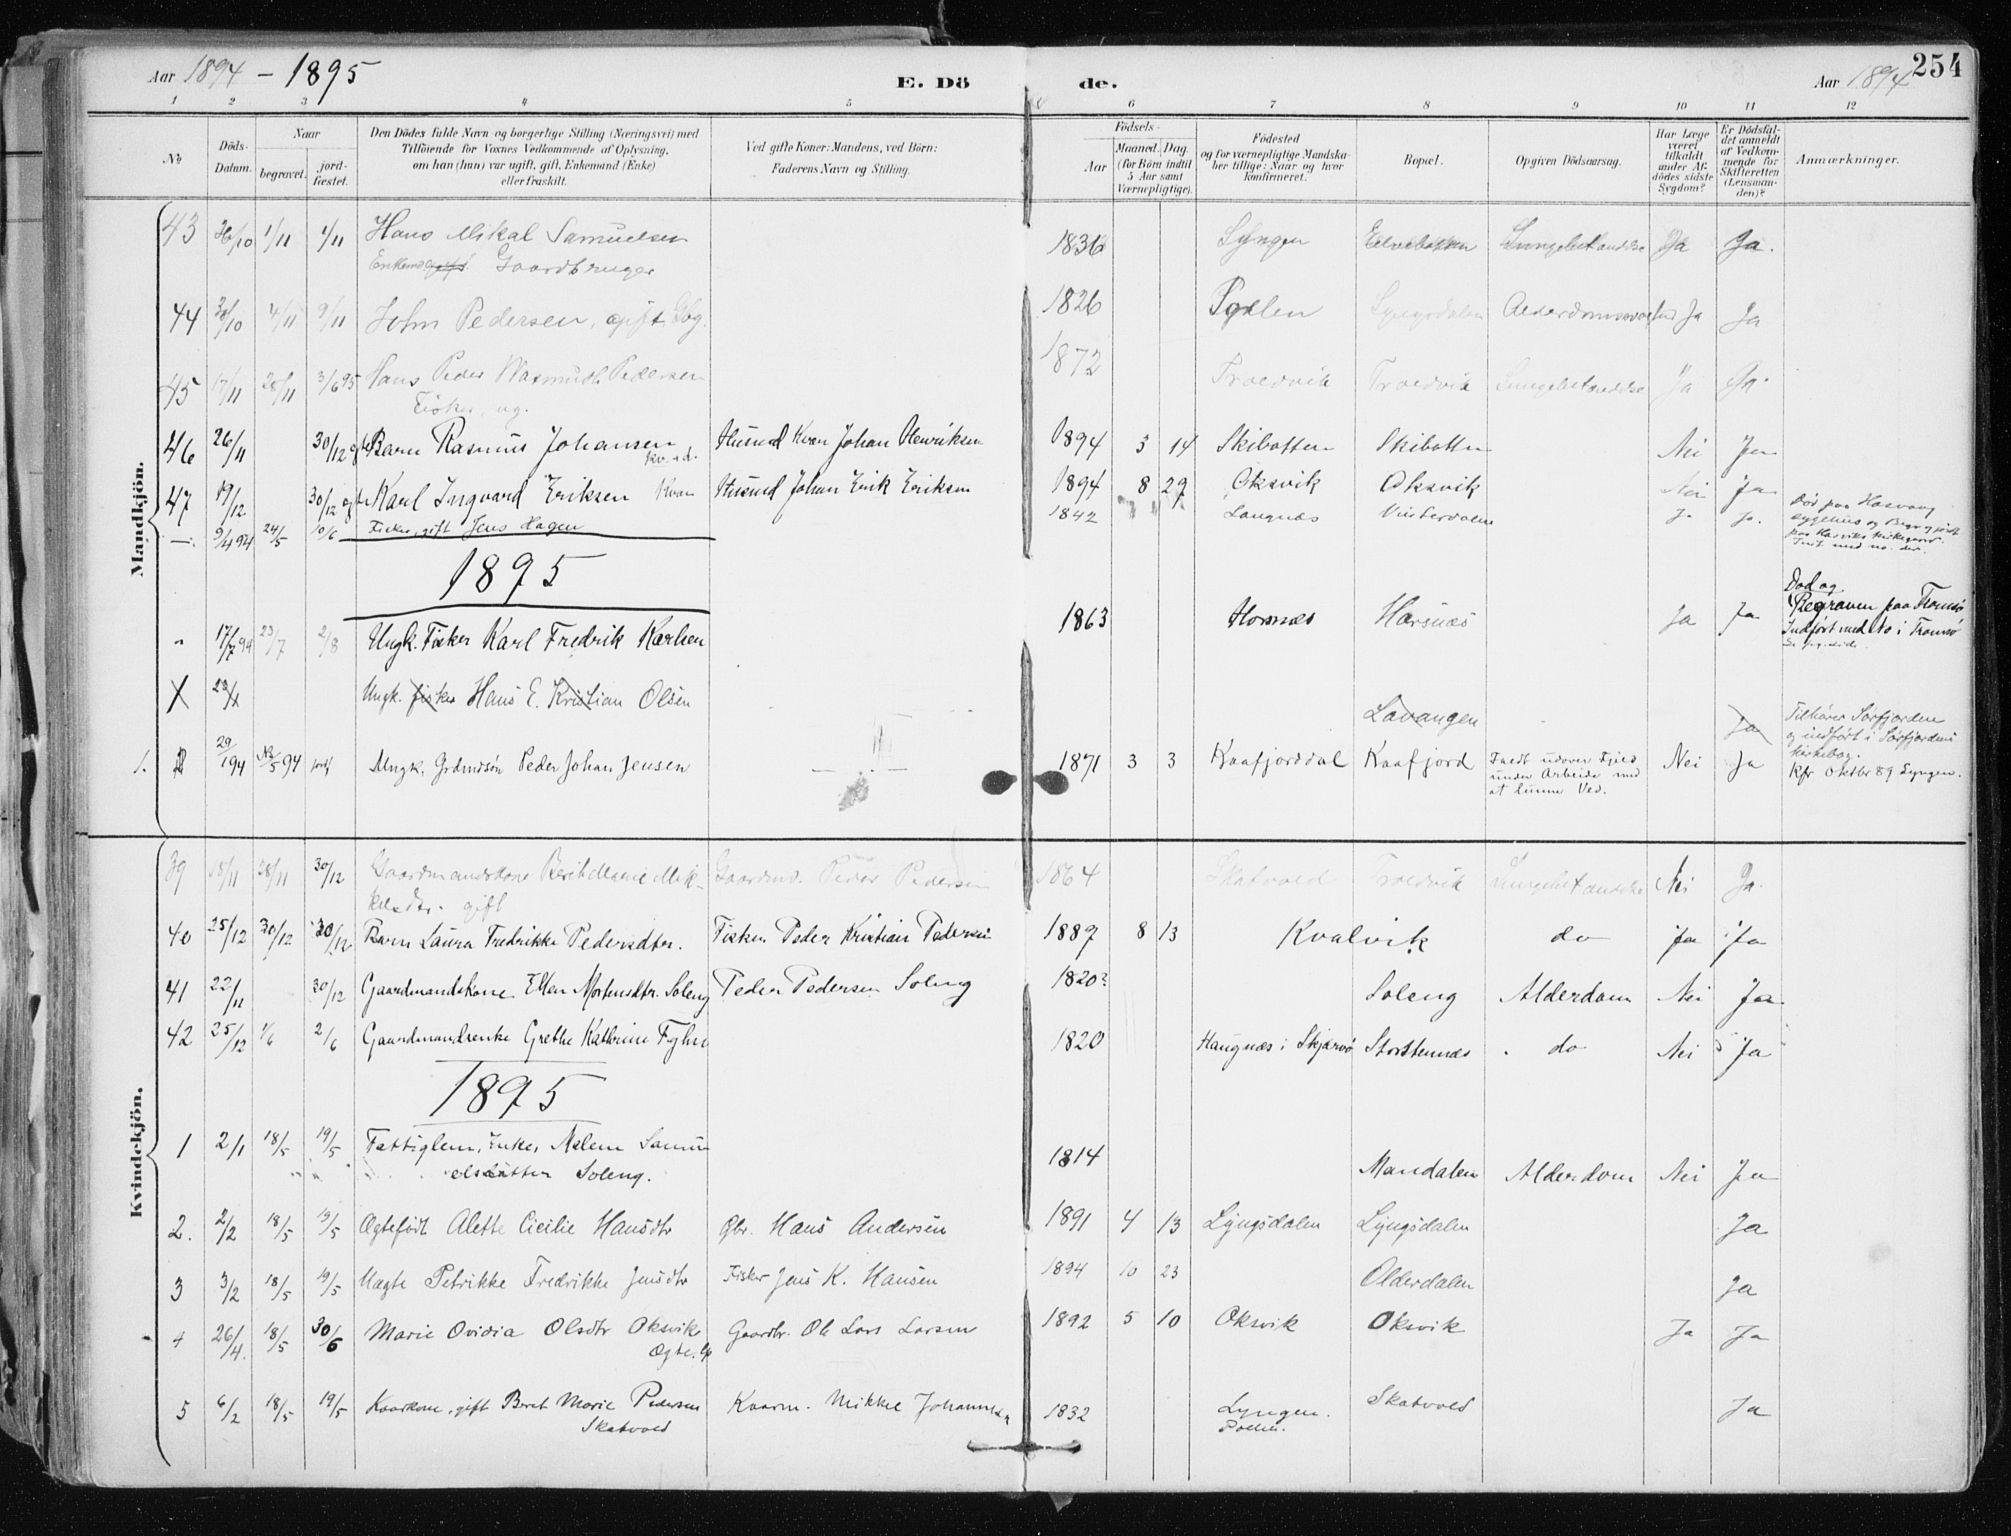 Aar 1894 – 1895
E. Dö
de.
Aar 1894
254
1 2 3 4 5 6 7 8 9 10 11 12
No
Döds-Datum.
Naar
begravet.
jord-fæstet.
Den Dödes fulde Navn og borgerlige Stilling (Næringsvei) med
Tilföiende for Voxnes Vedkommende af Oplysning,
om han (hun) var ugift, gift, Enkemand (Enke)
eller fraskilt.
Ved gifte Koner: Mandens, ved Börn:
Faderens Navn og Stilling.
Födsels-
Aar
Maaned. Dag.
(for Börn indtil
5 Aar samt
Værnepligtige).
Födested
og for værnepligtige Mandska-
ber tillige: Naar og hvor
konfirmeret.
Bopæl.
Opgiven Dödsaarsag.
Har Læge
været
tilkaldt
under Af-
dödes sidste
Sygdom?
Er Dödsfal-
det anmeldt
af Vedkom-
mende for
Skifteretten
(Lensman-
den)?
Anmærkninger.
Mandkjön.
43 1/11 1/11 Hans Mikal Samuelsen 1836 Lyngen Ja Ja.
Enkemd Gaardbruger
44 30/10 4/11 9/11 John Pedersen, gift Gbg. 1826 Lyngsdalen Ja Ja
45 17/11 28/11 3/6 95 Hans Peder Wasmuth Pedersen 1872 Troldvik Troldvik Ja Ja
Fisker, ug.
46 26/11 30/12 Barn Rasmus Johansen Husmd Kvæn Johan Henriksen 1894 3 14 Skibotten Skibotten Nei Ja
47 19/12 30/12 Karl Ingvard Eriksen Kvæn Husmd Johan Erik Eriksen 1894 8 29 Oksvik Oksvik Nei Ja
9/4 94 24/5 10/6 Fisker, gift Jens Hagen 1842 Langnæs Ja Ja
1895
17/7 94 23/7 2/8 Ungk. Fisker Karl Fredrik Karlsen 1863 Hosnæs Ja Ja
Død og
Begraven paa Tromsø
Indført med No i Tromsø
X Ungk. fisker Hans E. Kristian Olsen Lavangen Ja
Tilhører Sørfjorden
og indført i Sørfjordens
Kirkebog.
1. 29/1 94 Ungk. Grdmdsön Peder Johan Jensen 1871 3 3 Kaafjorddal Kaafjord Faldt udover Fjeld Nei Ja Kfr Oktbr 89 Lyngen.
under Arbeide med
at lunne Ved.
Kvindekjön.
39 18/11 28/11 30/12 Gaardmandskone Berit Marie Mik- Gaardmd. Peder Pedersen 1864 Skatvold Troldvik Nei Ja
kelsdtr. gift
40 25/12 30/12 30/12 Barn Laura Fredrikke Pedersdtr. Fisker Peder Kristian Pedersen 1887 8 13 Kvalvik do Ja Ja
41 22/11 30/12 Gaardmandskone Ellen Mortensdtr. Soleng Peder Pedersen Soleng 1820? Soleng Alderdom Nei Ja
42 25/12 1/6 2/6 Gaardmandsenke Grethe Kathrine 1820 Haugnæs i Skjærvø Storstennæs do Nei Ja
1895
1 2/1 18/5 19/5 Fattiglem, Enke, Malene Samu- 1814 Mandalen Alderdom Nei Ja
elsdatter Soleng.
2. 2/2 18/5 19/5 Ægtefödt Alette Cicilie Hansdtr Gbr. Hans Andersen 1891 4 13 Lyngsdalen Lyngsdalen Ja
3 3/2 18/5 19/5 Uægte Petrikke Fredrikke Jensdtr Fisker Jens K. Hansen 1894 10 23 Olderdalen Ja
4 26/4. 18/5 30/6 Marie Ovidia Olsdtr Oksvik Gaardbr. Ole Lars Larsen 1892 5 10 Oksvik Oksvik Ja Ja
Ægte.
5 6/2 18/5 19/5 Kaarkone, gift Beret Marie Pedersen Kaarm. Mikkel Johannesen 1832 Lyngen. Skatvold Ja
Skatvold Pollen.